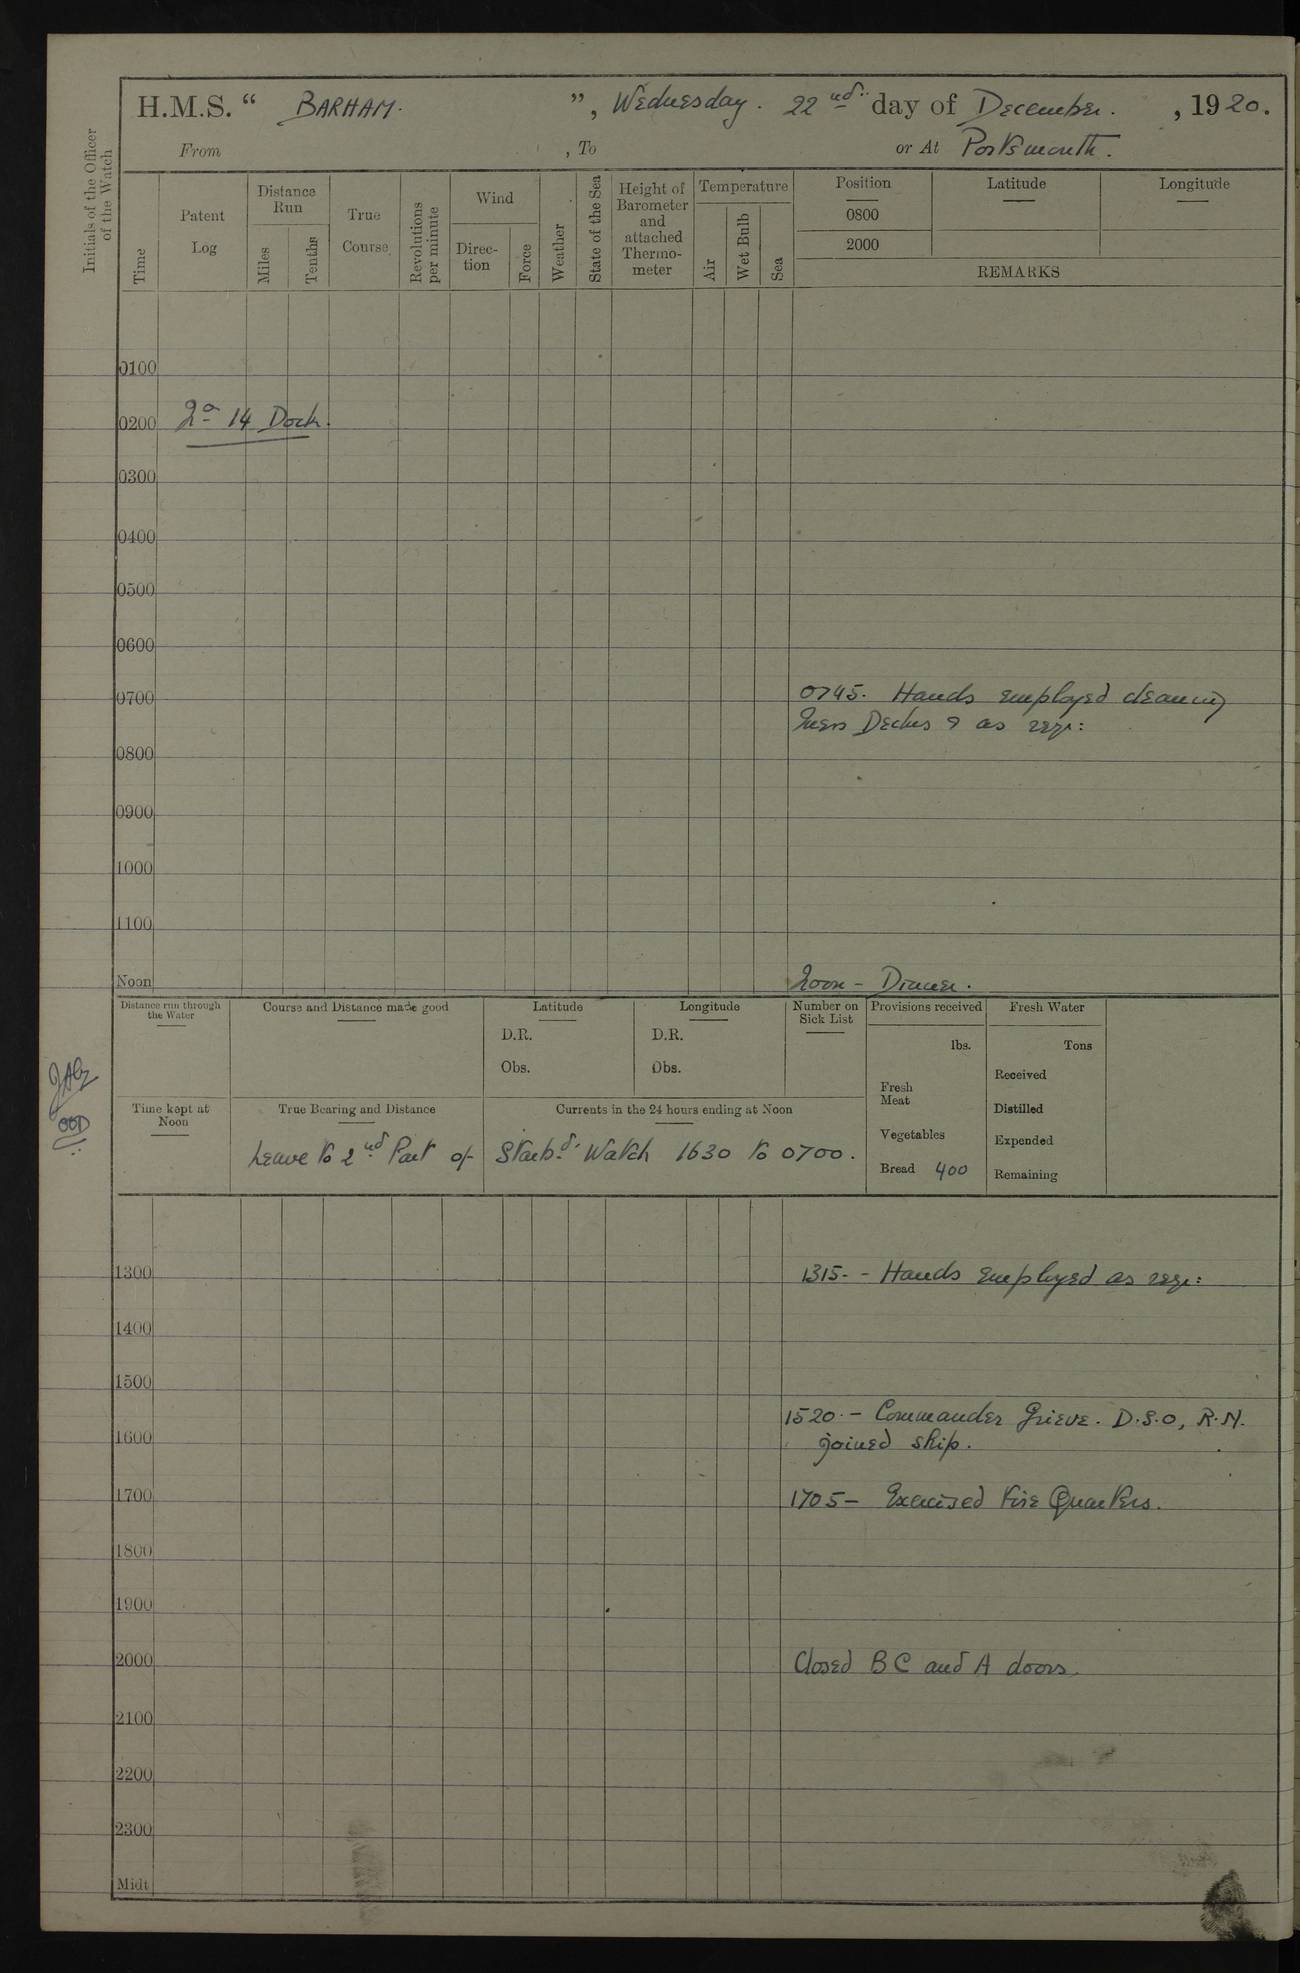 H.M.S. “ BARHAM. ”, Wednesday. 22nd day of December. , 1920.
From , To or At Portsmouth.
Initials of the Officer of the Watch
Time
Patent Log
Distance Run
Miles
Tenths
True Course
Revolutions per minute
Wind
Direction
Force
Weather
State of the Sea
Height of Barometer and attached Thermometer
Temperature
Air
Wet Bulb
Sea
Position
0800
2000
Latitude
Longitude
REMARKS
0100
0200 No 14 Dock.
0300
0400
0500
0600
0700 0745. Hands employed cleaning
Mess Decks & as req:
0800
0900
1000
1100
Noon Noon - Dinner.
Distance run through the Water
Course and Distance made good
Latitude
D.R.
Obs.
Longitude
D.R.
Obs.
Number on Sick List
Provisions received
lbs.
Fresh Meat
Vegetables
Bread 400
Fresh Water
Tons
Received
Distilled
Expended
Remaining
Time kept at Noon
True Bearing and Distance
Currents in the 24 hours ending at Noon
Leave to 2nd Part of Starbd. Watch 1630 to 0700.
OOD
1300 1315. - Hands employed as req:
1400
1500
1520. - Commander Grieve. D.S.O, R.N.
1600 joined ship.
1700 1705 - Exercised Fire Quarters.
1800
1900
2000 Closed B C and A doors.
2100
2200
2300
Midt